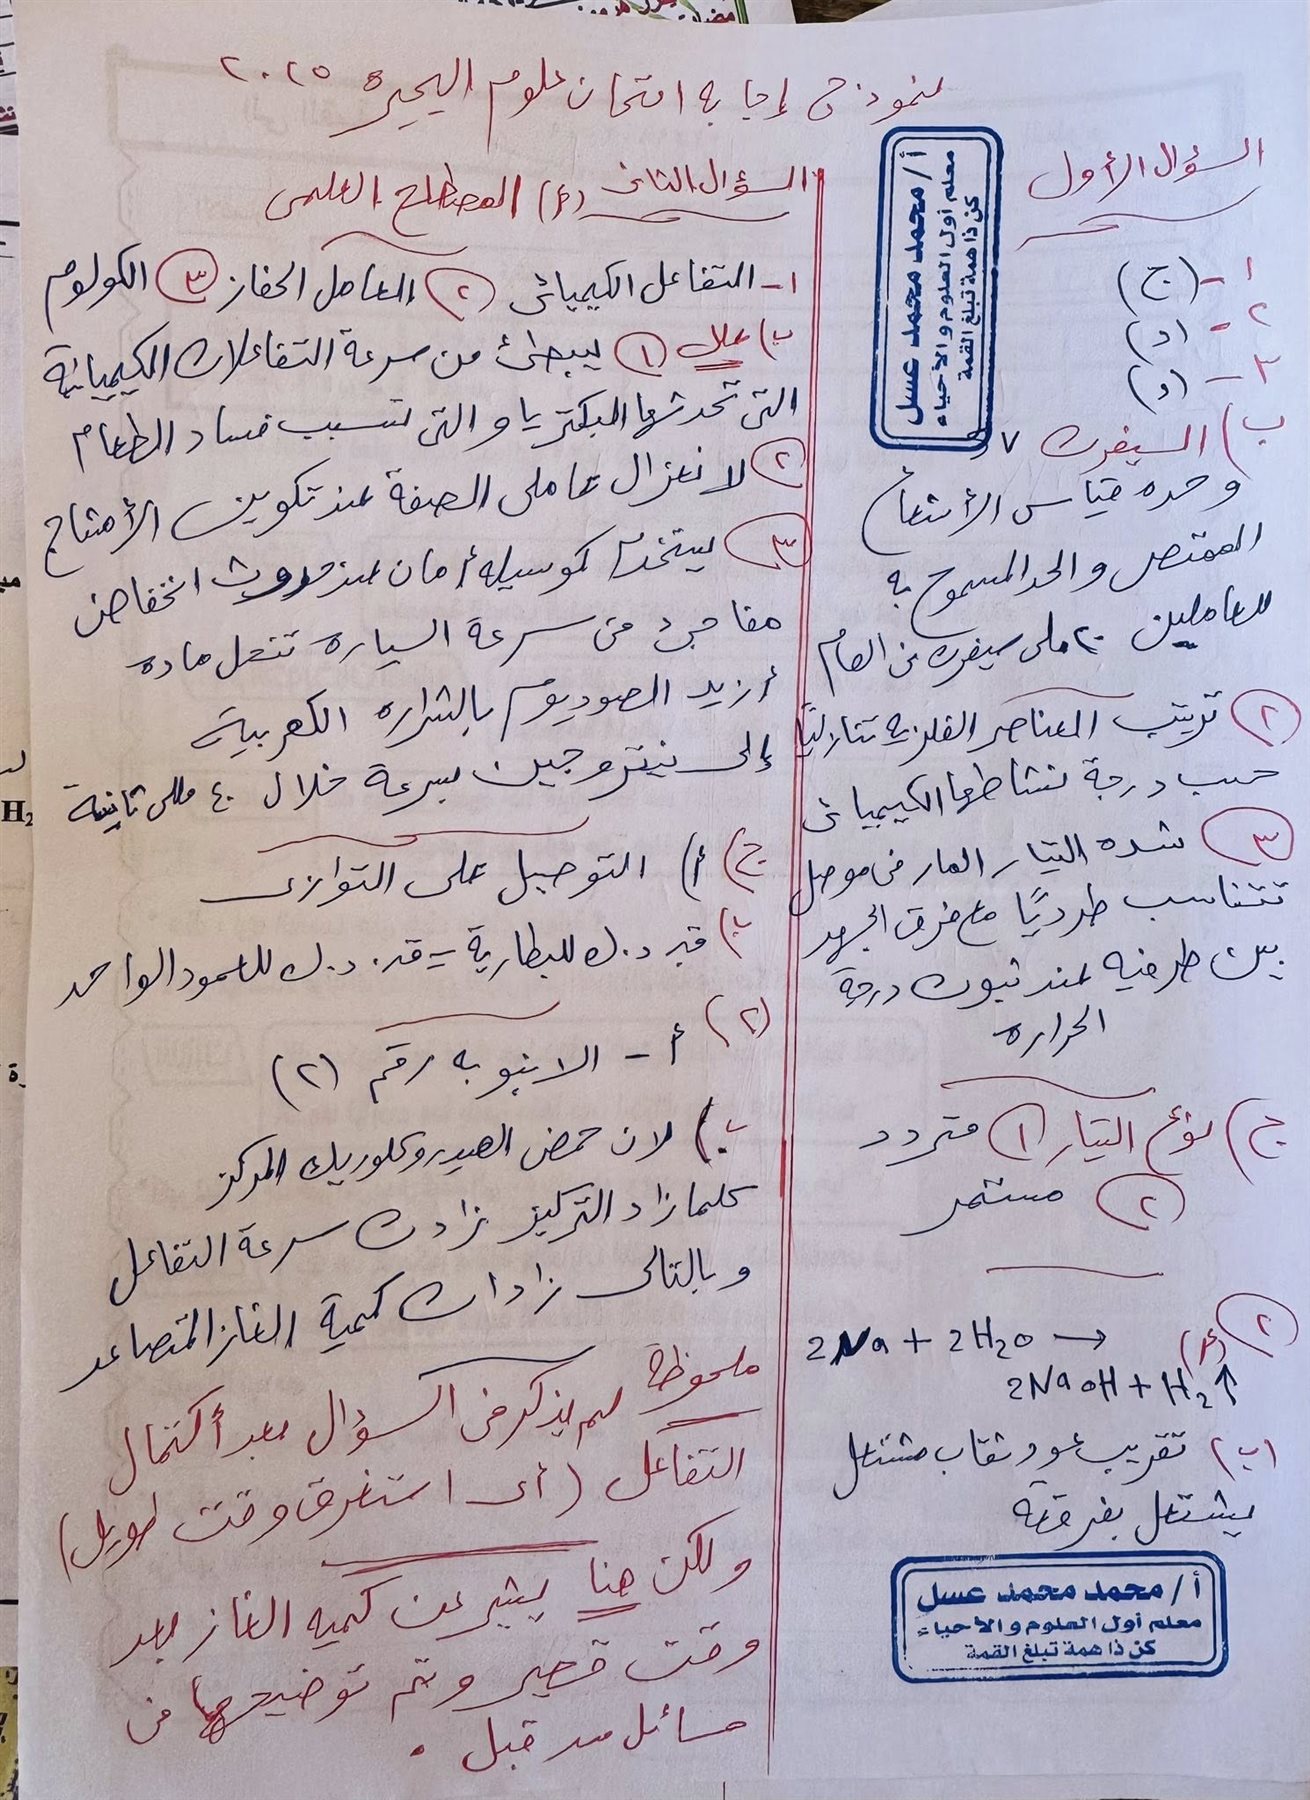 نموذج إجابه امتحان علوم البحيره ٢٠٢٥
السؤال الأول
١- (ج)
٢- (د)
٣- (د)
ب) السيفرت
وحده قياس الأشعاع
الممتص والحد المسموح به
للعاملين ٢٠ ملى سيفرت فى العام
٢ ترتيب العناصر الفلزيه تنازليًا
حسب درجة نشاطها الكيميائى
٣ شده التيار المار فى موصل
تتناسب طرديًا مع فرق الجهد
بين طرفيه عند ثبوت درجة
الحراره
ج) نوع التيار ١ متردد
٢ مستمر
٢ (أ) 2Na + 2H2O →
2NaOH + H2↑
(ب) تقريب عود ثقاب مشتعل
يشتعل بفرقعة
أ / محمد محمد عسل
معلم أول العلوم والأحياء
كن ذا همة تبلغ القمة
السؤال الثانى (أ) المصطلح العلمى
١- التفاعل الكيميائى ٢ العامل الحفاز ٣ الكولوم
ب) علل ١ ليبطئ من سرعة التفاعلات الكيميائية
التى تحدثها البكتريا والتى تسبب فساد الطعام
٢ لانعزال عاملى الصفة عند تكوين الأمشاج
٣ يستخدم كوسيله أمان عند حدوث انخفاض
مفاجئ فى سرعة السيارة تنحل ماده
أزيد الصوديوم بالشراره الكهربية
إلى نيتروجين بسرعة خلال ٤٠ مللى ثانية
ج) أ) التوصيل على التوازى
ب) ق. د. ك للبطارية = ق. د. ك للعمود الواحد
(٢) أ - الانبوبه رقم (٢)
ب) لان حمض الهيدروكلوريك المركز
كلما زاد التركيز زادت سرعة التفاعل
وبالتالى زادات كمية الغاز المتصاعد
ملحوظة لم يذكر فى السؤال بعد أكتمال
التفاعل (أى استغرق وقت طويل)
ولكن هنا يشير عن كميه الغاز بعد
وقت قصير وتم توضيحها فى
مسائل من قبل .
أ / محمد محمد عسل
معلم أول العلوم والأحياء
كن ذا همة تبلغ القمة